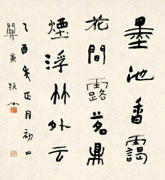 墨池香靄
花間露茗鼎
煙浮竹外云
乙酉正月初